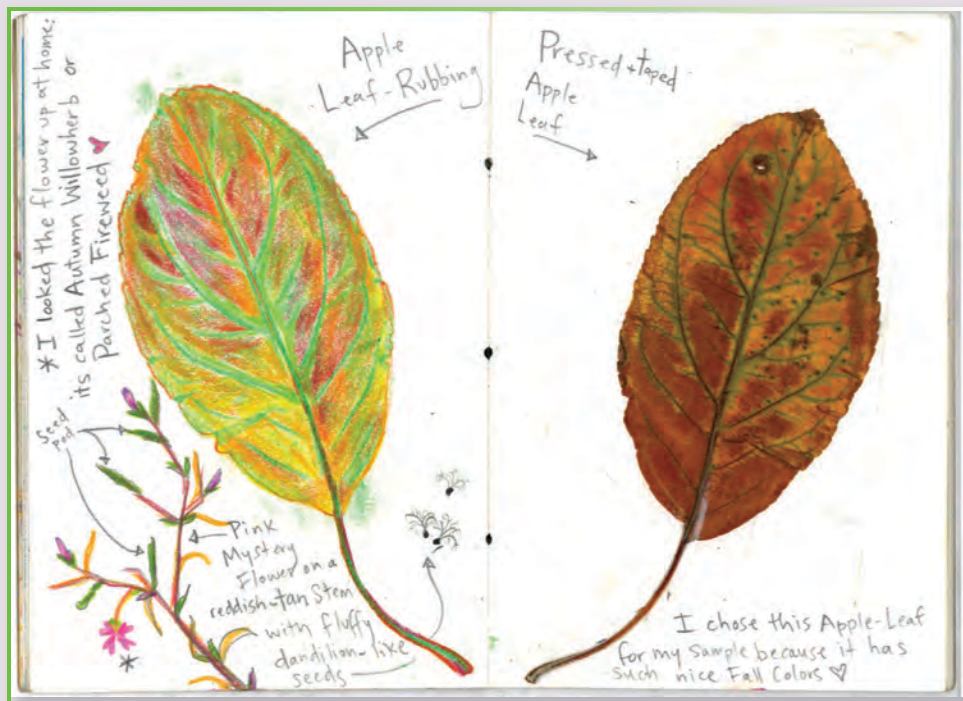 *I looked the flower up at home;
its called Autumn Willowherb or
Parched Fireweed
Apple
Leaf-Rubbing
Seed
pod
Pink
Mystery
Flower on a
reddish-tan Stem
with fluffy
dandilion-like
seeds
*
Pressed + taped
Apple
Leaf
I chose this Apple-Leaf
for my sample because it has
such nice Fall Colors